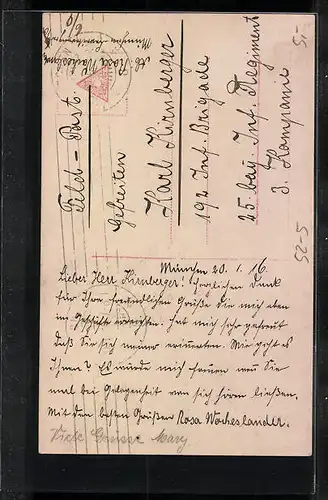 Abs. Rosa
München
Feld-Post.
Gefreiten
Karl Kirnberger
192 Inf. Brigade
25 bay. Inf. Regiment
3. Kompanie
5,-
5-25
München 20. 1. 16.
Lieber Herr Kirnberger! Herzlichen Dank
für Ihre freundlichen Grüße die mich eben
im Geschäft erreichten. Hat mich sehr gefreut
daß Sie sich meiner erinnerten. Wie geht es
Ihnen? Es würde mich freuen wenn Sie
mal bei Gelegenheit von sich hören ließen.
Mit den besten Grüßen Rosa
Viele Grüsse Mary